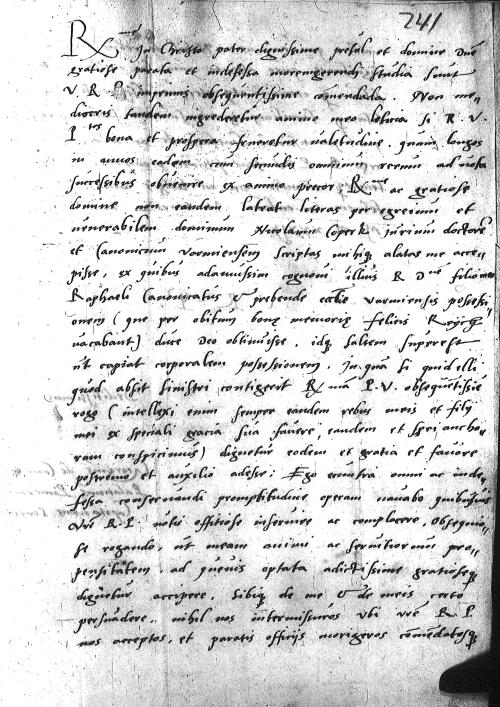 241
R in Christo pater dignissime presul et domine due
gratiose parata et indefessa moremgerendi studia sunt
V R P imprimis obsequentissime comendata. Non me„
diocris tandem ingrederetur animo meo leticia si R. V.
P. bona et prospera frueretur valetudine. quam longos
in annos eadem cum secundis omnium rerum ad vota
successibus obtinere ex animo precor; R ac gratiose
domine non eandem lateat literas per egregium et
venerabilem dominum Nicolaum Coperk iurium doctore
et Canonicum varmiensem scriptas mihiq alatas me acce„
pisse, ex quibus adamussim cognoui illius R D filio meo
Raphaeli Canonicatus & prebende eccie varmiensis possessi„
onem (que per obitum bonę memorię felicis
vacabant) duce Deo obtinuisse, idq saltem superest
ut capiat corporalem possessionem. In qua si quid illi
quod absit sinistri contigerit R P. V. obsequetissie
rogo (intellexi enim semper eandem rebus meis et filij
mei ex speciali gracia sua fauere, eandem et spei ancho„
ram conspicimus) dignetur eodem et gratia et fauore
postremo et auxilio adesse: Ego omni ac inde„
fesso conseruandi promptitudine operam nauabo quibusuis
Vre R. P. notis offitiose inseruire ac complacere. Obsequio„
se rogando, ut meam animi ac seruitiorum pro„
pensitatem. ad queuis optata adictissime gratioseq
dignetur accipere. Sibiq de me & de meis certo
persuadere. nihil nos intermissuros ubi vre R. P.
nos acceptos, et paratis officijs morigeros comedatosq